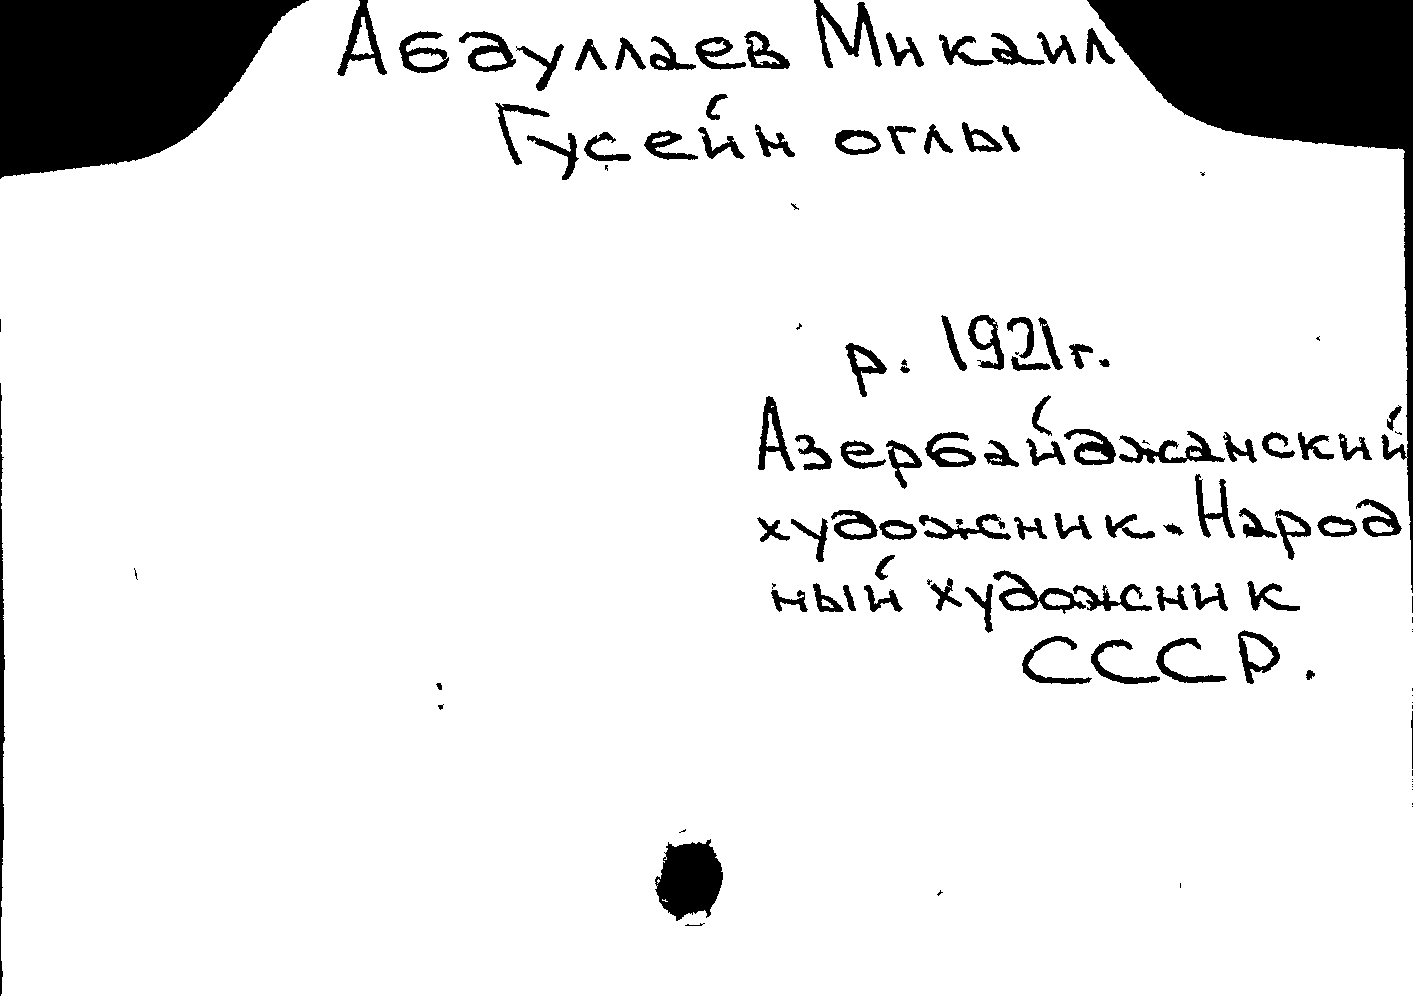 Абдуллаев Микаил
Гусейн оглы
р. 1921г.
Азербайджанский
художник. Народ
ный художник
СССР.